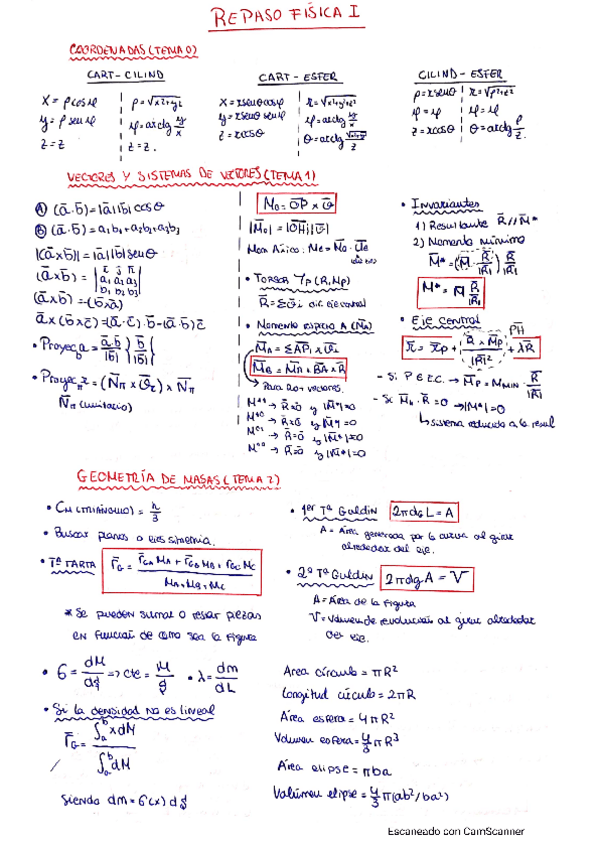 REPASO FÍSICA I
COORDENADAS (TEMA 0)
CART - CILIND
x = ρ cos φ
y = ρ sen φ
z = z.
ρ = √x²+y²
φ = arctg y/x
z = z.
CART - ESFER
x = r senθ cosφ
y = r senθ senφ
z = r cosθ
r = √x²+y²+z²
φ = arctg y/x
θ = arctg √x²+y²/z
CILIND - ESFER
ρ = r senθ
φ = φ
z = r cosθ
r = √ρ²+z²
φ = φ
θ = arctg ρ/z.
VECTORES Y SISTEMAS DE VECTORES (TEMA 1)
A (ā·b̄) = |ā||b̄| cosθ
B (ā·b̄) = a₁b₁ + a₂b₂ + a₃b₃
|(ā×b̄)| = |ā||b̄| senθ
(ā×b̄) = | i j k / a₁ a₂ a₃ / b₁ b₂ b₃ |
(ā×b̄) = -(b̄×ā)
ā×(b̄×c̄) = (ā·c̄)·b̄-(ā·b̄)c̄
• Proyec a = (ā·b̄/|b̄|)(b̄/|b̄|)
• Proyec π = (N̄π × v̄r) × N̄π
N̄π (unitario)
M̄o = ŌP × v̄
|M̄o| = |ŌH||v̄|
Mom Áxico: Me = M̄o · Ūe
• Torsor γp (R, Mp)
R̄ = Σv̄i dir. eje central
• Momento respecto A (M̄A)
M̄A = ΣĀPi × v̄i
M̄B = M̄A + B̄A × R̄
Para dos vectores.
→ R̄≠0 y |M̄*|≠0
→ R̄≠0 y |M̄*| = 0
→ R̄=0 y |M̄*|≠0
→ R̄=0 y |M*|=0
• Invariantes
1) Resultante R̄ // M̄*
2) Momento mínimo
M̄* = (M̄·R̄/|R̄|) R̄/|R̄|
M* = M̄ R̄/|R̄|
• Eje central
r̄ = r̄p + R̄×M̄p/|R̄|² + λR̄
PH̄
- Si P ∈ E.C. → M̄p = Mmin · R̄/|R̄|
- Si M̄o · R̄ = 0 → |M*| = 0
↳ sistema reducido a la result
GEOMETRÍA DE MASAS (TEMA 2)
• CM (TRIÁNGULO) = h/3
• Buscar planos o ejes simetría.
• Tª TARTA r̄G = r̄GA MA + r̄GB MB + r̄GC MC / MA+MB+MC
* Se pueden sumar o restar piezas
en función de como sea la figura
• σ = dM/dS => cte = M/S • λ = dm/dL
• Si la densidad no es lineal
r̄G = ∫ab xdM / ∫ab dM
siendo dm = σ(x) dS
• 1er Tª Guldin 2πdG L = A
A = Área generada por la curva al girar
alrededor del eje.
• 2º Tª Guldin 2πdg A = V
A = Área de la figura
V = Volumen de revolución al girar alrededor
del eje.
Area círculo = πR²
Longitud círculo = 2πR
Área esfera = 4πR²
Volumen esfera = 4/3 πR³
Área elipse = πba
Volúmen elipse = 4/3 π(ab²/ba²)
Escaneado con CamScanner